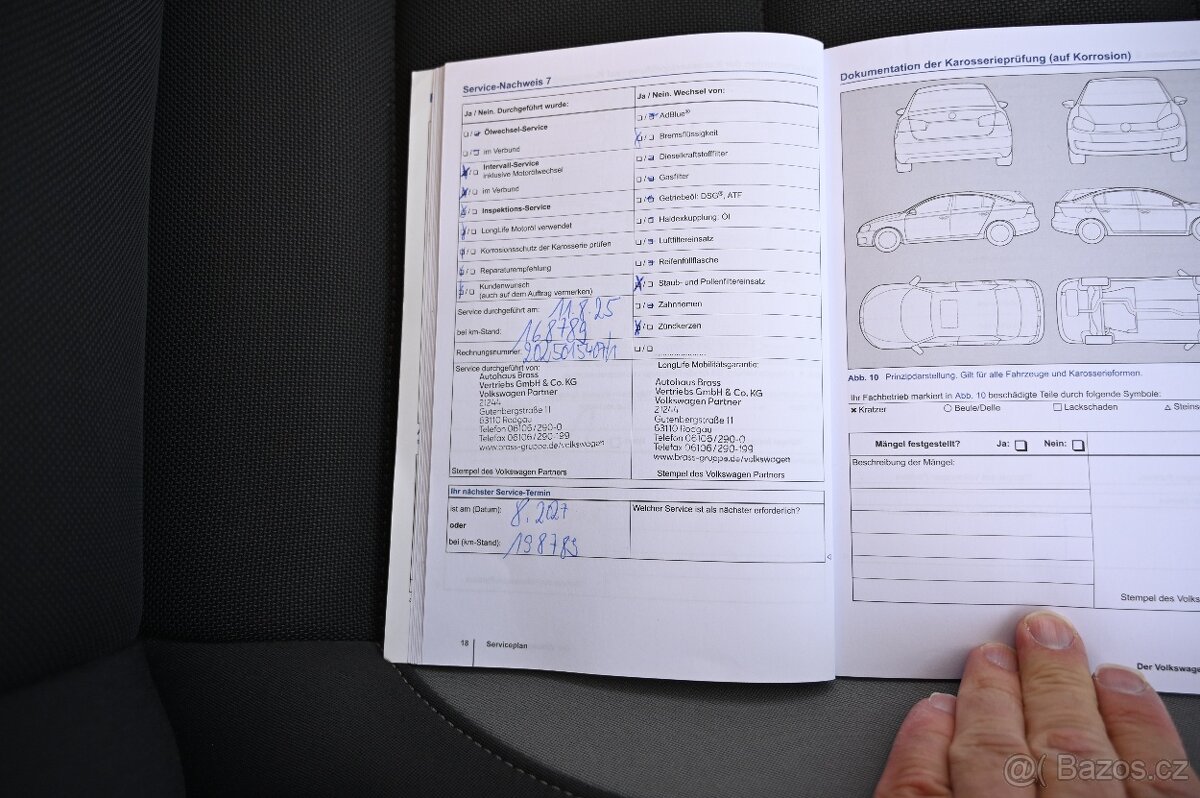 Service-Nachweis 7
Ja / Nein. Durchgeführt wurde:
Ölwechsel-Service
im Verbund
Intervall-Service
inklusive Motorölwechsel
im Verbund
Inspektions-Service
LongLife Motoröl verwendet
Korrosionsschutz der Karosserie prüfen
Reparaturempfehlung
Kundenwunsch
(auch auf dem Auftrag vermerken)
Service durchgeführt am: 11.8.25
bei km-Stand: 168789
Rechnungsnummer: 2025015407/1
Service durchgeführt von:
Autohaus Brass
Vertriebs GmbH & Co. KG
Volkswagen Partner
21244
Gutenbergstraße 11
63110 Rodgau
Telefon 06106/290-0
Telefax 06106/290-199
www.brass-gruppe.de/volkswagen
Stempel des Volkswagen Partners
Ja / Nein. Wechsel von:
AdBlue®
Bremsflüssigkeit
Dieselkraftstofffilter
Gasfilter
Getriebeöl: DSG®, ATF
Haldexkupplung: Öl
Luftfiltereinsatz
Reifenfüllflasche
Staub- und Pollenfiltereinsatz
Zahnriemen
Zündkerzen
LongLife Mobilitätsgarantie:
Autohaus Brass
Vertriebs GmbH & Co. KG
Volkswagen Partner
21244
Gutenbergstraße 11
63110 Rodgau
Telefon 06106/290-0
Telefax 06106/290-199
www.brass-gruppe.de/volkswagen
Stempel des Volkswagen Partners
Ihr nächster Service-Termin
ist am (Datum): 8.2027
oder
bei (km-Stand): 198789
Welcher Service ist als nächster erforderlich?
18 Serviceplan
Dokumentation der Karosserieprüfung (auf Korrosion)
Abb. 10 Prinzipdarstellung. Gilt für alle Fahrzeuge und Karosserieformen.
Ihr Fachbetrieb markiert in Abb. 10 beschädigte Teile durch folgende Symbole:
Kratzer Beule/Delle Lackschaden Steins
Mängel festgestellt? Ja: Nein:
Beschreibung der Mängel:
Stempel des Volks
Der Volkswage
@( Bazos.cz